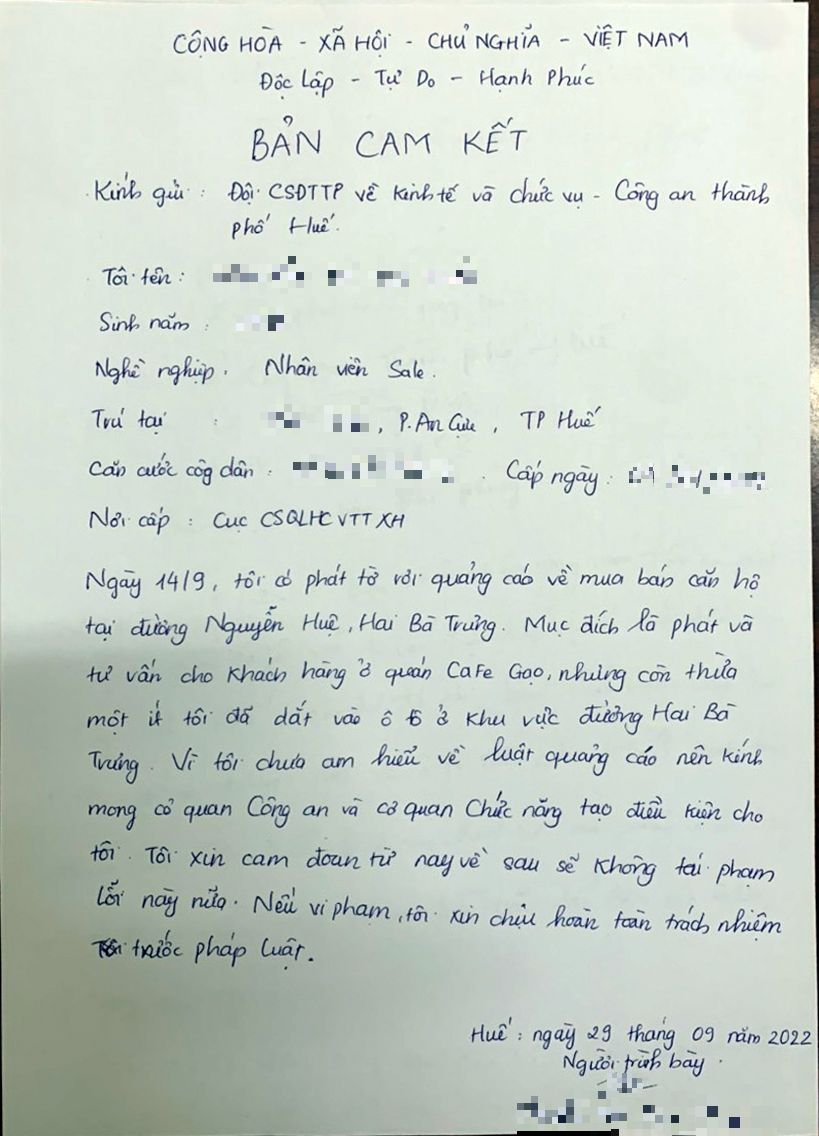 CỘNG HÒA - XÃ HỘI - CHỦ NGHĨA - VIỆT NAM
Độc Lập - Tự Do - Hạnh Phúc
BẢN CAM KẾT
Kính gửi: Đội CSĐTTP về kinh tế và chức vụ - Công an thành
phố Huế.
Tôi tên:
Sinh năm:
Nghề nghiệp. Nhân viên Sale.
Trú tại : , P. An Cựu, TP Huế
Căn cước côg dân: . Cấp ngày:
Nơi cấp: Cục CSQLHCVTTXH
Ngày 14/9, tôi có phát tờ rơi quảng cáo về mua bán căn hộ
tại đường Nguyễn Huệ, Hai Bà Trưng. Mục đích là phát và
tư vấn cho khách hàng ở quán Cafe Gạo, nhưng còn thừa
một ít tôi đã dắt vào ô tô ở khu vực đường Hai Bà
Trưng. Vì tôi chưa am hiểu về luật quảng cáo nên kính
mong cơ quan Công an và cơ quan Chức năng tạo điều kiện cho
tôi. Tôi xin cam đoan từ nay về sau sẽ không tái phạm
lỗi này nữa. Nếu vi phạm, tôi xin chịu hoàn toàn trách nhiệm
trước pháp luật.
Huế: ngày 29 tháng 09 năm 2022
Người trình bày.